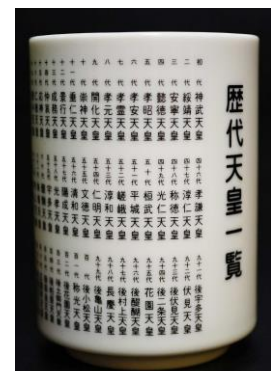 歴代天皇一覧
初代 神武天皇
二代 綏靖天皇
三代 安寧天皇
四代 懿徳天皇
五代 孝昭天皇
六代 孝安天皇
七代 孝霊天皇
八代 孝元天皇
九代 開化天皇
十代 崇神天皇
十一代 垂仁天皇
十二代 景行天皇
十三代 成務天皇
四十六代 孝謙天皇
四十七代 淳仁天皇
四十八代 称徳天皇
四十九代 光仁天皇
五十代 桓武天皇
五十一代 平城天皇
五十二代 嵯峨天皇
五十三代 淳和天皇
五十四代 仁明天皇
五十五代 文徳天皇
五十六代 清和天皇
五十七代 陽成天皇
九十一代 後宇多天皇
九十二代 伏見天皇
九十三代 後伏見天皇
九十四代 後二条天皇
九十五代 花園天皇
九十六代 後醍醐天皇
九十七代 後村上天皇
九十八代 長慶天皇
九十九代 後亀山天皇
百代 後小松天皇
百一代 称光天皇
百二代 後花園天皇